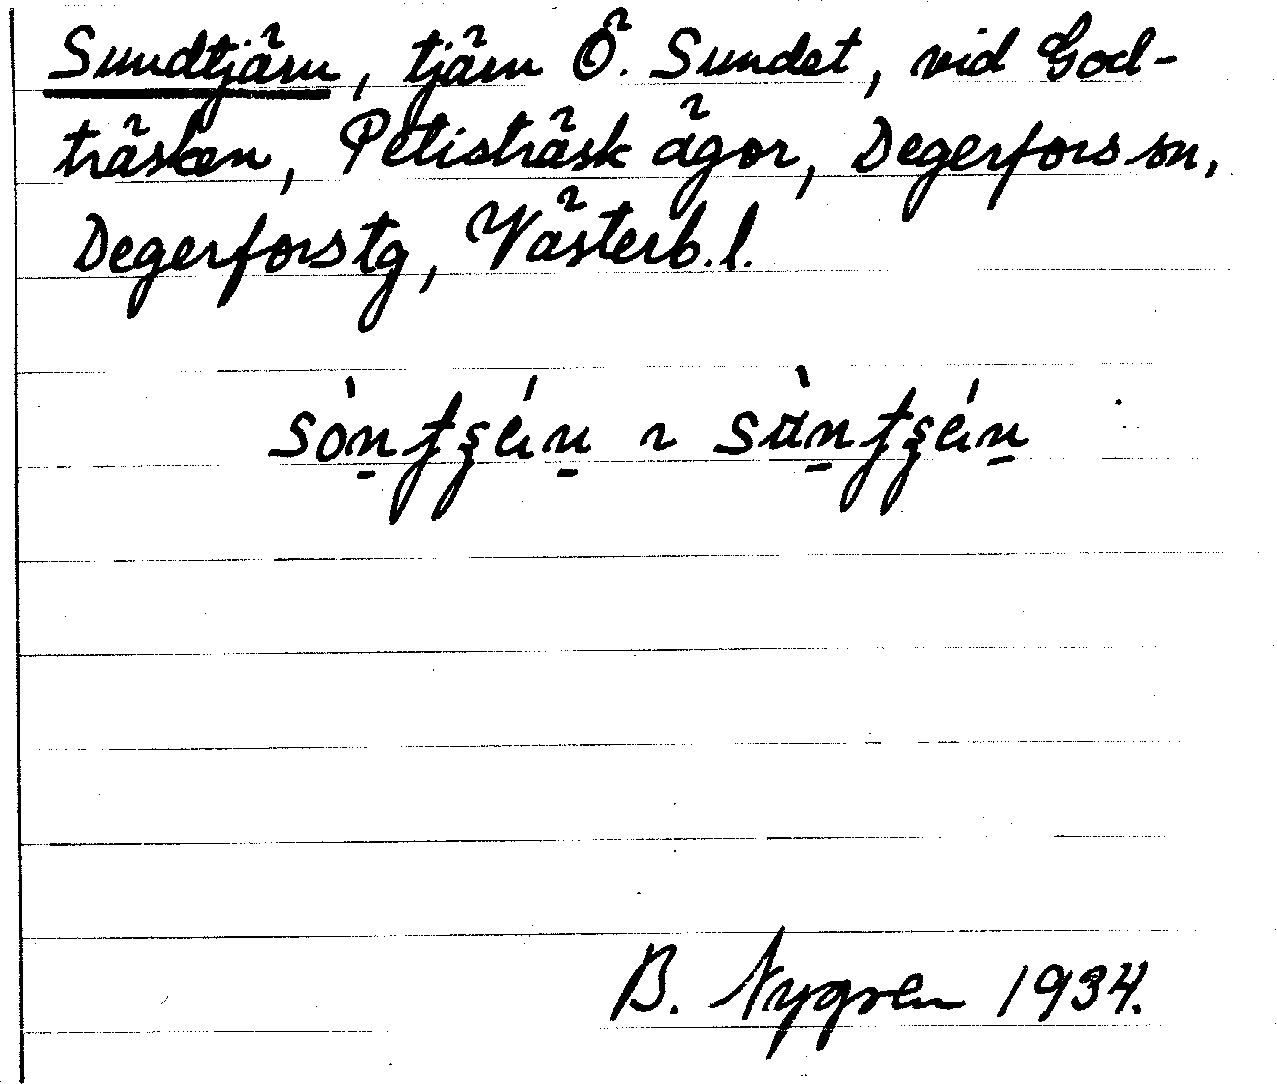 Sundtjärn, tjärn Ö. Sundet, vid God-
träsken, Petisträsk ägor, Degerfors sn,
Degerfors tg, Västerb. l.
B. Nygren 1934.